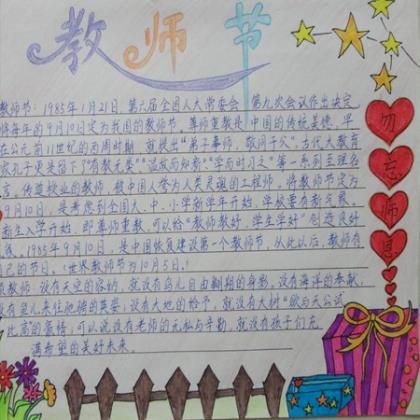 教师节
教师节：1985年1月21日，第六届全国人大常委会第九次会议作出决定
将每年的9月10日定为我国的教师节。尊师重教是中国的传统美德，早
在公元前11世纪的西周时期，就提出"弟子事师，敬同于父"。古代大教育
家孔子更是留了了"有教无类""温故而知新""学而时习之"等一系列至理名
言。传道授业的教师，被中国人誉为人类灵魂的工程师。将教师节定为
9月10日，是考虑到全国大、中、小学新学年开始，学校要有新气象。
新生入学开始，即尊师重教，可以给"教师教好、学生学好"创造良好
1985年9月10日，是中国恢复建设第一个教师节，从此以后，教师有
己的节日。（世界教师节为10月5日。）
教师：没有天空的宽容，就没有鸟儿自由翱翔的身影，没有海洋的奉献，
有鱼儿来往驰骋的英姿，没有大地的给予，就没有大树"欲与天公试
比高的豪情，可以说没有老师的无私与辛勤，就没有孩子们充
满希望的美好未来。
勿
忘
师
恩